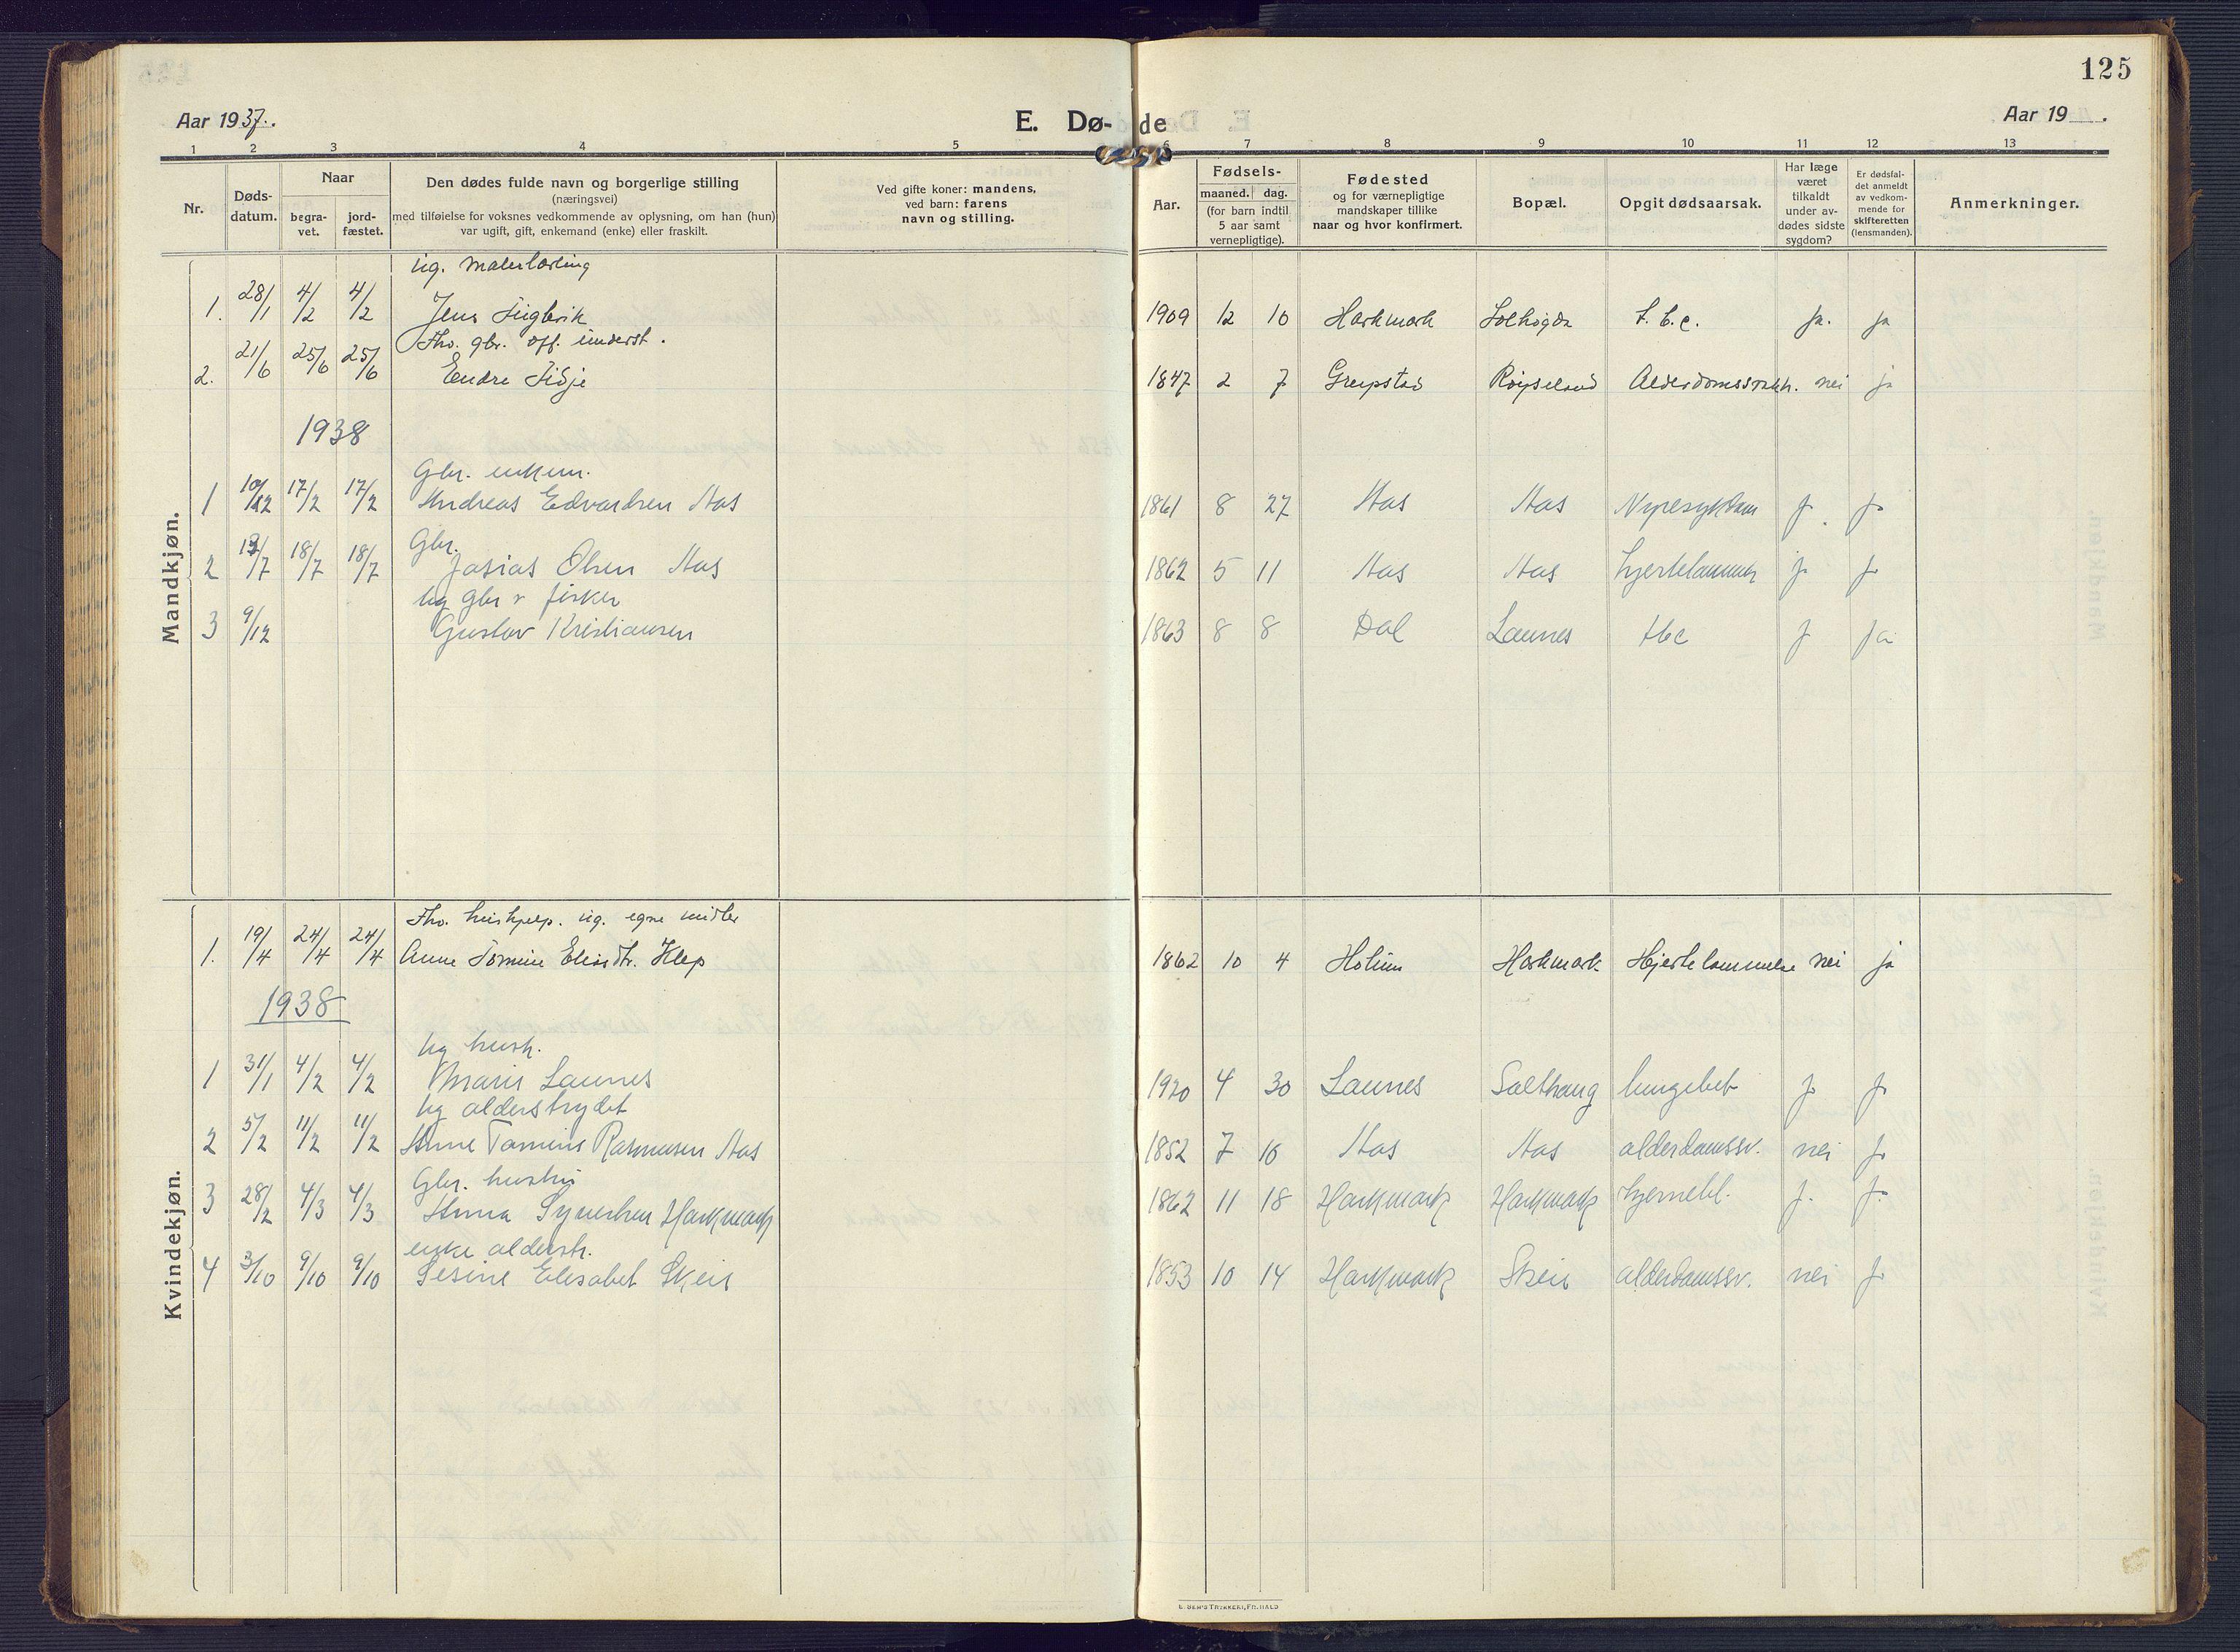 125
Aar 1937.
E. Dø-
de
Aar 19 .
1 2 3 4 5 6 7 8 9 10 11 12 13
Nr.
Døds-
datum.
Naar
begra-
vet.
jord-
fæstet.
Den dødes fulde navn og borgerlige stilling
(næringsvei)
med tilføielse for voksnes vedkommende av oplysning, om han (hun)
var ugift, gift, enkemand (enke) eller fraskilt.
Ved gifte koner: mandens,
ved barn: farens
navn og stilling.
Aar.
Fødsels-
maaned. dag.
(for barn indtil
5 aar samt
vernepligtige).
Fødested
og for værnepligtige
mandskaper tillike
naar og hvor konfirmert.
Bopæl.
Opgit dødsaarsak.
Har læge
været
tilkaldt
under av-
dødes sidste
sygdom?
Er dødsfal-
det anmeldt
av vedkom-
mende for
skifteretten
(lensmanden).
Anmerkninger.
Mandkjøn.
ug. malerlærling
1. 28/1 4/2 4/2 Jens 1909 12 10 Harkmark Solhøgda t.b.c. ja. ja
Fho. gbr. off. underst.
2. 21/6 25/6 25/6 Endre Tidje 1847 2 7 Greipstad Røyseland nei ja
1938
Gbr. enkem.
1 17/2 17/2 Andreas Edvardsen Aas 1861 8 27 Aas Aas Nyresykdom j. j.
Gbr.
2 18/7 18/7 Josias Olsen Aas 1862 5 11 Aas Aas j. j.
ug gbr & fisker
3 9/12 Gustav Kristiansen 1863 8 8 Dal Launes tbc j. ja
Kvindekjøn.
Fho. hushjelp. ug. egne midler
1. 19/4 24/4 24/4 Anne Tomine Klep 1862 10 4 Holum Harkmark Hjertelammelse nei ja
1938
ug hush.
1 31/1 4/2 4/2 Marie Launes 1920 4 30 Launes Salthaug lungebet j. j.
ug alderstrygdet
2 5/2 11/2 11/2 Anne Tomine Rasmusen Aas 1852 7 16 Aas Aas alderdomssv. nei j.
Gbr. hustru
3 28/2 4/3 4/3 Anna Syvertsen Harkmark 1862 11 18 Harkmark Harkmark hjernebl. j. j.
enke alderstr.
4 3/10 9/10 9/10 Sesine Elisabet Skeie 1853 10 14 Harkmark Skeie alderdomssv. nei j.